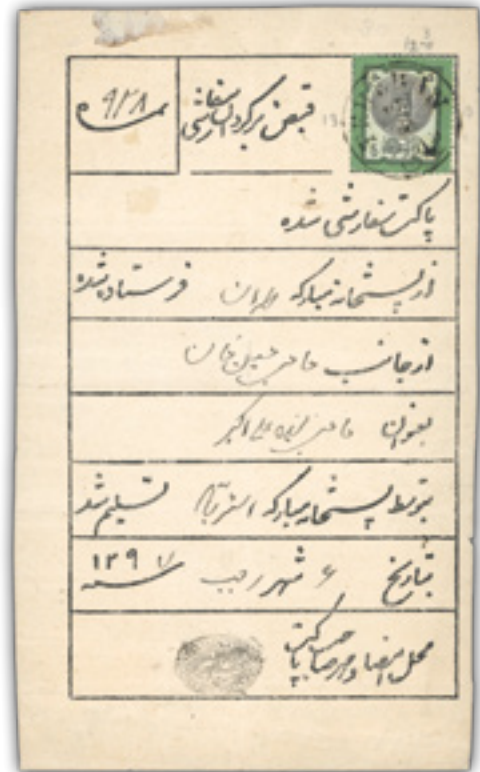 قبض برگردان سفارشی
نمره ۹۲۸
پاکت سفارشی شده
از پستخانه مبارکه طهران فرستاده شده
از جانب حاجی خان
بعنوان حاجی علی اکبر
بتوسط پستخانه مبارکه استرآباد تسلیم شد
بتاریخ ۶ شهر رجب سنه ۱۲۹۷
محل امضا و مهر صاحب پاکت